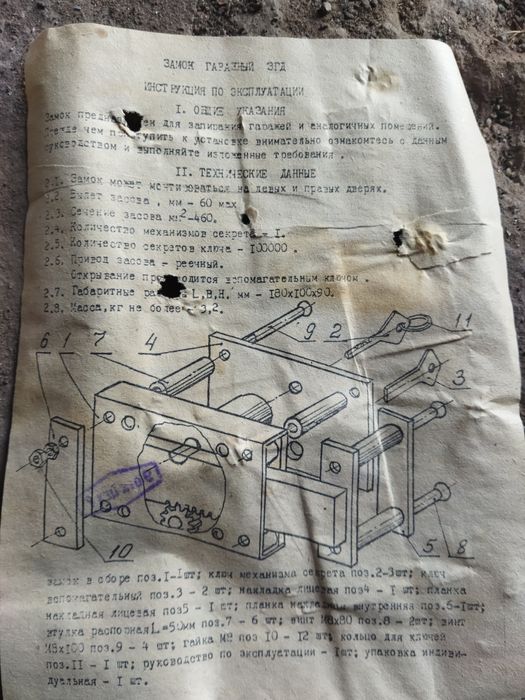 ЗАМОК ГАРАЖНЫЙ ЗГД
ИНСТРУКЦИЯ ПО ЭКСПЛУАТАЦИИ
I. ОБЩИЕ УКАЗАНИЯ
Замок предназначен для запирания гаражей и аналогичных помещений.
Прежде чем приступить к установке внимательно ознакомтесь с данным
руководством и выполняйте изложенные требования .
II. ТЕХНИЧЕСКИЕ ДАННЫЕ
2.1. Замок может монтироваться на левых и правых дверях.
2.2. Вылет засова , мм - 60 мах
2.3. Сечение засова мм2-460.
2.4. Количество механизмов секрета - I.
2.5. Количество секретов ключа - 100000 .
2.6. Привод засова - реечный.
Открывание производится вспомагательным ключом .
2.7. Габаритные размеры L,B,H, мм - 180х100х90.
2.8. Масса,кг не более - 3,2.
6 1 7 4 9 2 11
3
10 5 8
замок в сборе поз.I-Iшт; ключ механизма секрета поз.2-3шт; ключ
вспомагательный поз.3 - 2 шт; накладка лицевая поз4 - I шт; планка
накладная лицевая поз5 - I шт; планка накладная внутренняя поз.6-Iшт;
втулка распорная L=50мм поз.7 - 6 шт; винт М8х80 поз.8 - 2шт; винт
М8х100 поз.9 - 4 шт; гайка М8 поз 10 - 12 шт; кольцо для ключей
поз.II - I шт; руководство по эксплуатации - Iшт; упаковка индиви-
дуальная - I шт.